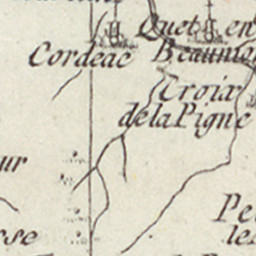 Quet en
Cordeac
Beaumon
Croix
de la Pigne
ur
Pe
sse
les